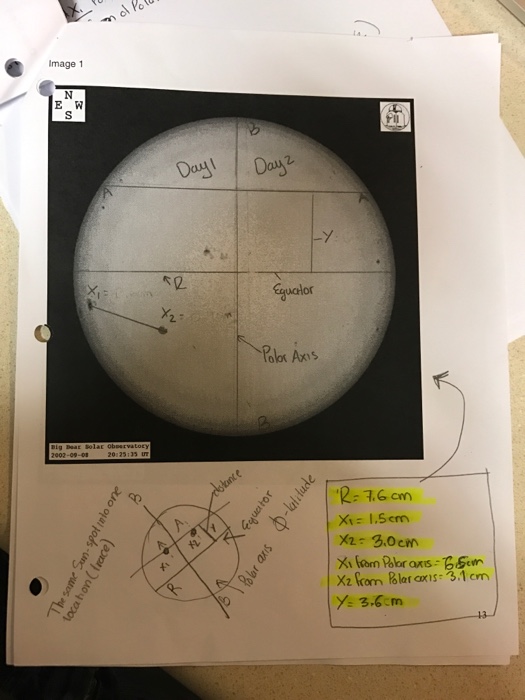 Image 1
N
E W
S
B
Day1 Day2
A
A
Y
R
Equator
X₁ =
X₂ =
Polar Axis
B
Big Bear Solar Observatory
2002-09-08 20:25:35 UT
The same Sun-spot into one
location (trace)
B
A
A
X₁
X₂
Y
R
A
B
distance
Equator
Polar axis
Φ-latitude
R = 7.6 cm
X₁ = 1.5 cm
X₂ = 3.0 cm
X₁ from Polar axis = 6.5 cm
X₂ from Polar axis = 3.1 cm
Y = 3.6 cm
13